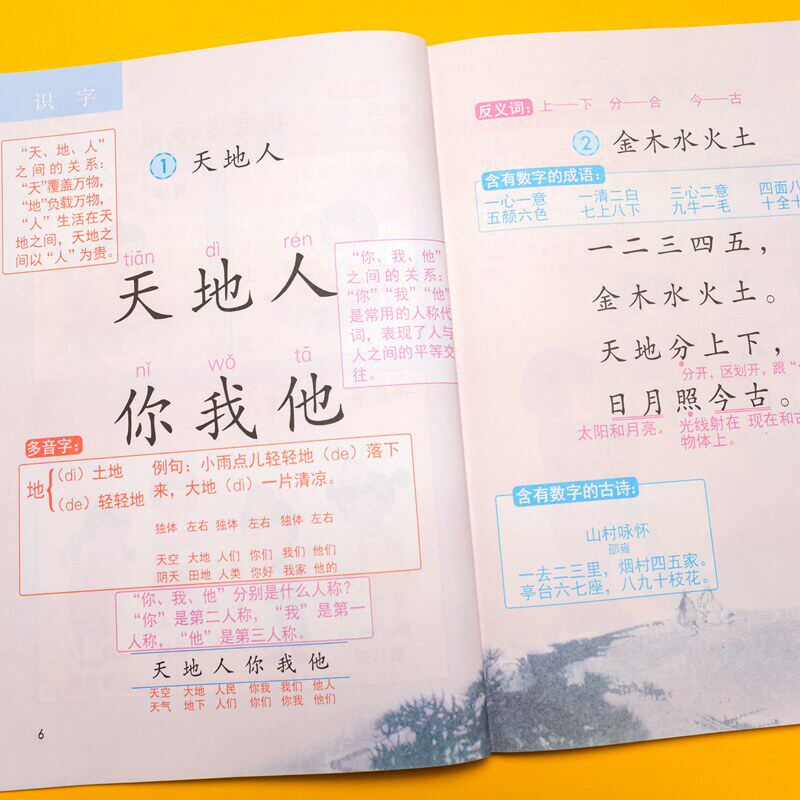 识字
“天、地、人”
之间的关系:
“天”覆盖万物,
“地”负载万物,
“人”生活在天
地之间,天地之
间以“人”为贵。
1 天地人
tiān dì rén
天地人
“你、我、他”
之间的关系:
“你”“我”“他”
是常用的人称代
词,表现了人与
人之间的平等交
往。
nǐ wǒ tā
你我他
多音字:
地
(dì)土地
(de)轻轻地
例句:小雨点儿轻轻地(de)落下
来,大地(dì)一片清凉。
独体 左右 独体 左右 独体 左右
天空 大地 人们 你们 我们 他们
阴天 田地 人类 你好 我家 他的
“你、我、他”分别是什么人称?
“你”是第二人称,“我”是第一
人称,“他”是第三人称。
天地人你我他
天空 大地 人民 你我 我们 他人
天气 地下 人们 你们 你我 他们
6
反义词:上——下 分——合 今——古
2 金木水火土
含有数字的成语:
一心一意 一清二白 三心二意 四面八
五颜六色 七上八下 九牛一毛 十全十
一二三四五,
金木水火土。
天地分上下,
分开,区划开,跟“
日月照今古。
太阳和月亮。 光线射在 现在和古
物体上。
含有数字的古诗:
山村咏怀
邵雍
一去二三里,烟村四五家。
亭台六七座,八九十枝花。